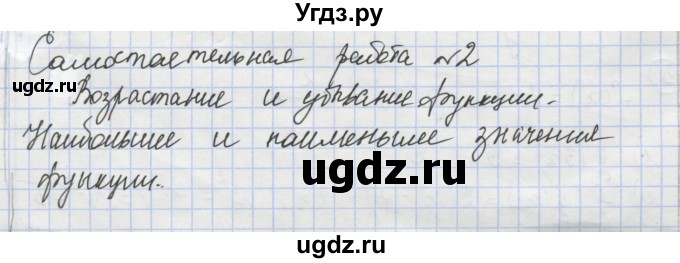 Угдз.ру
Самостоятельная работа №2
ugdz.ru
Возрастание и убывание функции.
ugdz.ru
Наибольшее и наименьшее значения
ugdz.ru
функции.
ugdz.ru